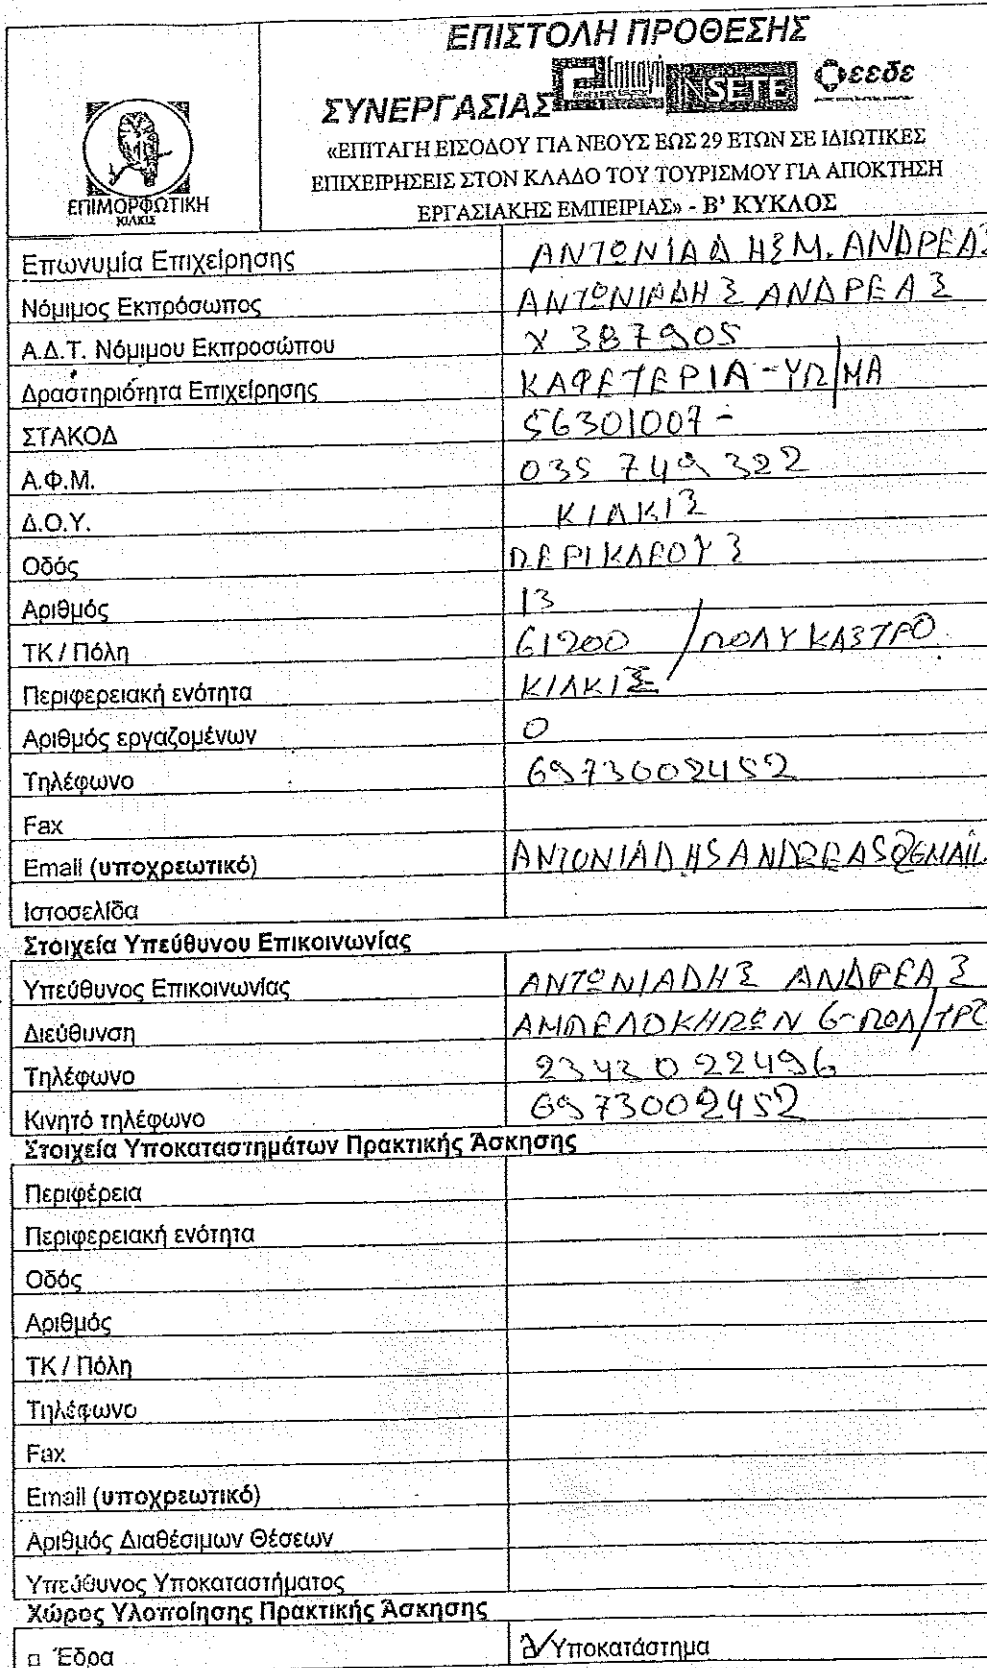 ΕΠΙΣΤΟΛΗ ΠΡΟΘΕΣΗΣ
ΣΥΝΕΡΓΑΣΙΑΣ INSETE εεδε
ΕΠΙΜΟΡΦΩΤΙΚΗ
ΚΙΛΚΙΣ
«ΕΠΙΤΑΓΗ ΕΙΣΟΔΟΥ ΓΙΑ ΝΕΟΥΣ ΕΩΣ 29 ΕΤΩΝ ΣΕ ΙΔΙΩΤΙΚΕΣ
ΕΠΙΧΕΙΡΗΣΕΙΣ ΣΤΟΝ ΚΛΑΔΟ ΤΟΥ ΤΟΥΡΙΣΜΟΥ ΓΙΑ ΑΠΟΚΤΗΣΗ
ΕΡΓΑΣΙΑΚΗΣ ΕΜΠΕΙΡΙΑΣ» - Β' ΚΥΚΛΟΣ
Επωνυμία Επιχείρησης ΑΝΤΩΝΙΑΔΗΣ Μ. ΑΝΔΡΕΑΣ
Νόμιμος Εκπρόσωπος ΑΝΤΩΝΙΑΔΗΣ ΑΝΔΡΕΑΣ
Α.Δ.Τ. Νόμιμου Εκπροσώπου Χ 387905
Δραστηριότητα Επιχείρησης ΚΑΦΕΤΕΡΙΑ - ΥΠ/ΜΑ
ΣΤΑΚΟΔ 56301007 -
Α.Φ.Μ. 035 749 322
Δ.Ο.Υ. ΚΙΛΚΙΣ
Οδός ΠΕΡΙΚΛΕΟΥΣ
Αριθμός 13
ΤΚ / Πόλη 61200 / ΠΟΛΥΚΑΣΤΡΟ
Περιφερειακή ενότητα ΚΙΛΚΙΣ
Αριθμός εργαζομένων 0
Τηλέφωνο 6973002452
Fax
Email (υποχρεωτικό) ANTONIADHSANDREAS@GMAIL.
Ιστοσελίδα
Στοιχεία Υπεύθυνου Επικοινωνίας
Υπεύθυνος Επικοινωνίας ΑΝΤΩΝΙΑΔΗΣ ΑΝΔΡΕΑΣ
Διεύθυνση ΑΜΠΕΛΟΚΗΠΩΝ 6 - ΠΟΛ/ΤΡΟ
Τηλέφωνο 23430 22496
Κινητό τηλέφωνο 6973002452
Στοιχεία Υποκαταστημάτων Πρακτικής Άσκησης
Περιφέρεια
Περιφερειακή ενότητα
Οδός
Αριθμός
ΤΚ / Πόλη
Τηλέφωνο
Fax
Email (υποχρεωτικό)
Αριθμός Διαθέσιμων Θέσεων
Υπεύθυνος Υποκαταστήματος
Χώρος Υλοποίησης Πρακτικής Άσκησης
□ Έδρα ☑ Υποκατάστημα